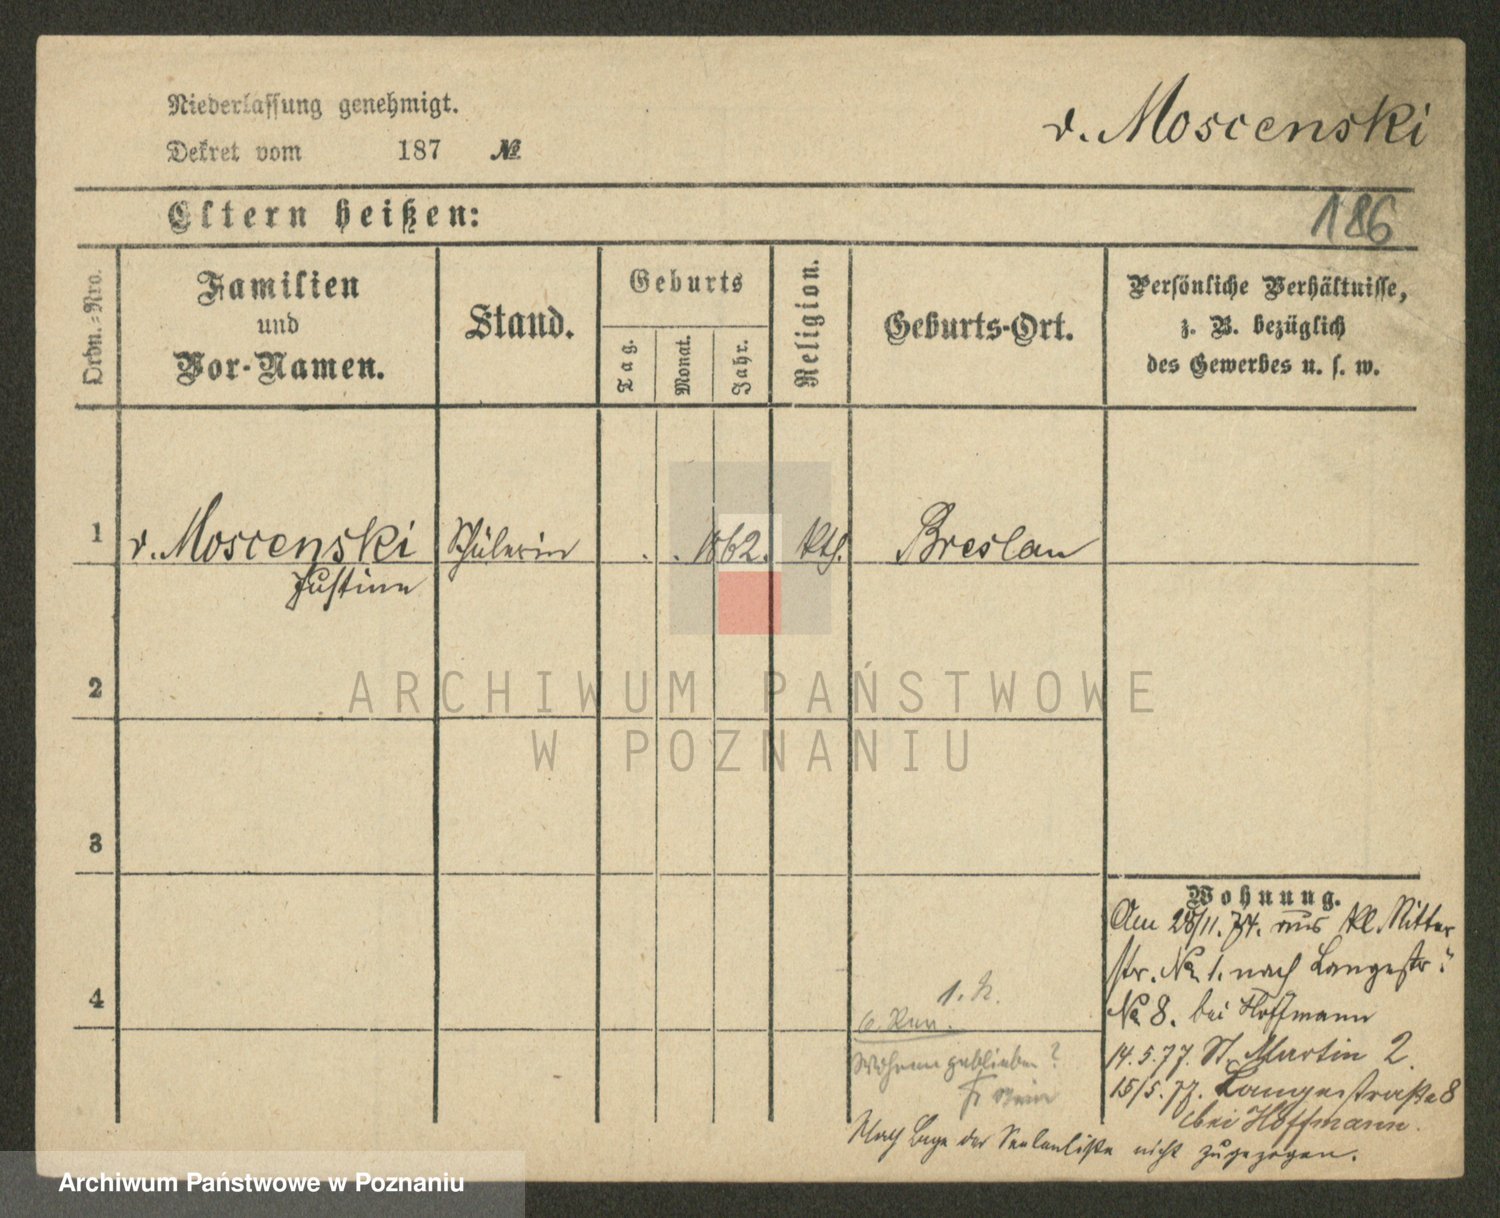 Niederlassung genehmigt.
Dekret vom 187 №
v. Moscenski
Eltern heißen:
186
Ordn.-Nro.
Familien
und
Vor-Namen.
Stand.
Geburts
Tag.
Monat.
Jahr.
Religion.
Geburts-Ort.
Persönliche Verhältnisse,
z. B. bezüglich
des Gewerbes u. s. w.
1 v. Moscenski Schülerin . . 1862. kth. Breslau
Justine
2
3
4
Wohnung.
Am 28/11. 74. aus kl. Ritter
str. No. 1. nach Langestr:
No 8. bei Hoffmann
14.5.77. St. Martin 2
15/5.77. Langestraße 8
bei Hoffmann.
Wohin geblieben?
Nach Lage der Seelenliste nicht zugezogen.
ARCHIWUM PAŃSTWOWE
W POZNANIU
Archiwum Państwowe w Poznaniu